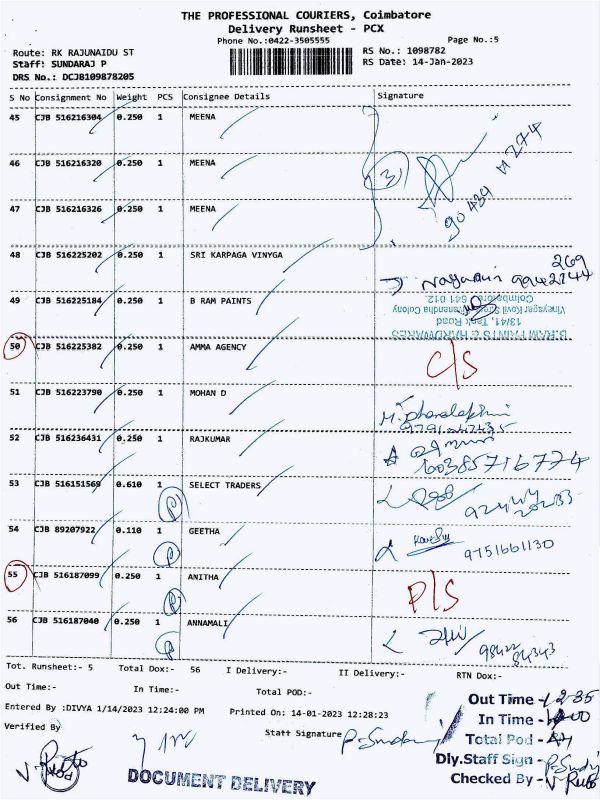 THE PROFESSIONAL COURIERS, Coimbatore
Delivery Runsheet - PCX
Phone No.:0422-3505555
Page No.:5
Route: RK RAJUNAIDU ST
RS No.: 1098782
Staff: SUNDARAJ P
RS Date: 14-Jan-2023
DRS No.: DCJB109878205
S No Consignment No Weight PCS Consignee Details Signature
45 CJB 516216304 0.250 1 MEENA
46 CJB 516216320 0.250 1 MEENA
(3)
90 439 74274
47 CJB 516216326 0.250 1 MEENA
48 CJB 516225202 0.250 1 SRI KARPAGA VINYGA
269
49 CJB 516225184 0.250 1 B RAM PAINTS
B.RAM PAINTS & HARDWARES
13/41, Tank Road
Vinayagar Kovil Street, Colony
Coimbatore 641 012.
50 CJB 516225382 0.250 1 AMMA AGENCY C/S
51 CJB 516223790 0.250 1 MOHAN D
52 CJB 516236431 0.250 1 RAJKUMAR
53 CJB 516151569 0.610 1 SELECT TRADERS
P
54 CJB 89207922 0.110 1 GEETHA
P 9751661130
55 CJB 516187099 0.250 1 ANITHA P/S
P
56 CJB 516187040 0.250 1 ANNAMALI
P 98422 84343
Tot. Runsheet:- 5 Total Dox:- 56 I Delivery:- II Delivery:- RTN Dox:-
Out Time:- In Time:- Total POD:-
Entered By :DIVYA 1/14/2023 12:24:00 PM Printed On: 14-01-2023 12:28:23
Verified By Staff Signature P. Sundaraj
Out Time - 12-35
In Time -
Total Pod -
Dly.Staff Sign - P. Sundaraj
Checked By -
DOCUMENT DELIVERY